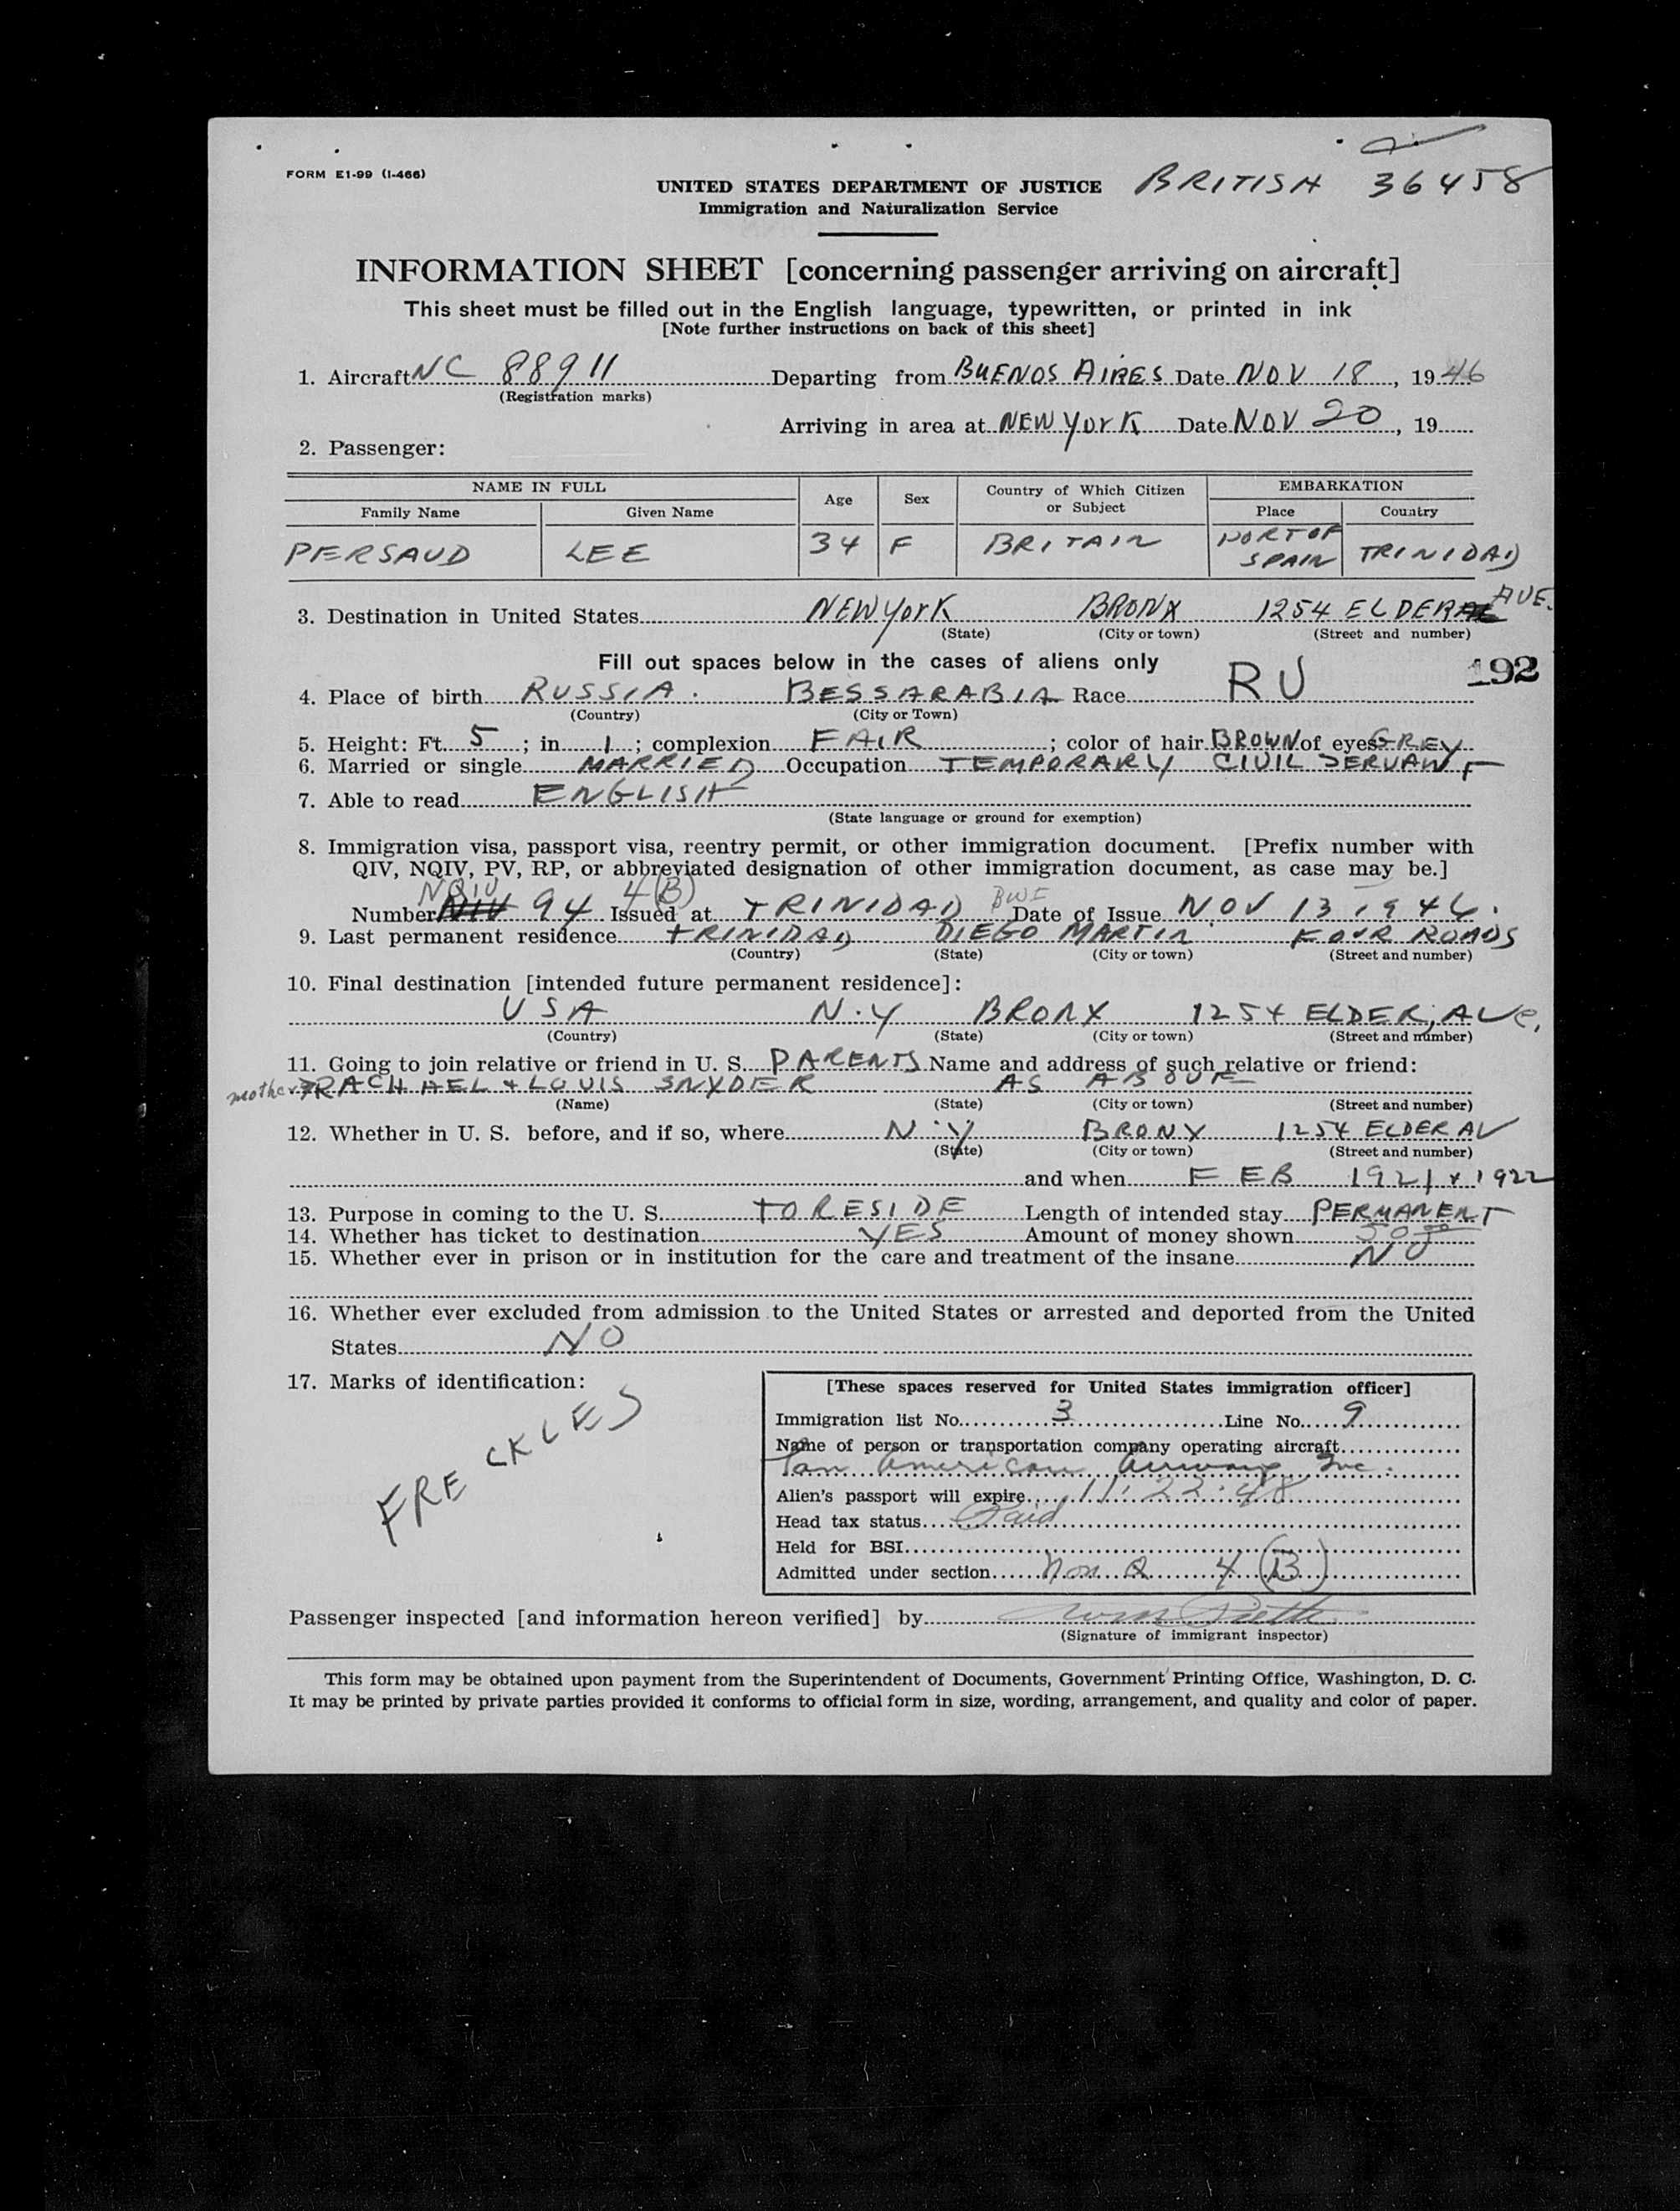 FORM E1-99 (I-466)
UNITED STATES DEPARTMENT OF JUSTICE BRITISH 36458
Immigration and Naturalization Service
INFORMATION SHEET [concerning passenger arriving on aircraft]
This sheet must be filled out in the English language, typewritten, or printed in ink
[Note further instructions on back of this sheet]
1. Aircraft NC 88911 Departing from BUENOS AIRES Date NOV 18, 1946
(Registration marks)
Arriving in area at NEW YORK Date NOV 20, 19
2. Passenger:
NAME IN FULL Age Sex Country of Which Citizen or Subject EMBARKATION
Family Name Given Name Place Country
PERSAUD LEE 34 F BRITAIN PORT OF SPAIN TRINIDAD
3. Destination in United States NEW YORK BRONX 1254 ELDER AVE.
(State) (City or town) (Street and number)
Fill out spaces below in the cases of aliens only
192
4. Place of birth RUSSIA. BESSARABIA Race RU
(Country) (City or Town)
5. Height: Ft. 5; in 1; complexion FAIR; color of hair BROWN of eyes GREY
6. Married or single MARRIED Occupation TEMPORARLY CIVIL SERVANT
7. Able to read ENGLISH
(State language or ground for exemption)
8. Immigration visa, passport visa, reentry permit, or other immigration document. [Prefix number with
QIV, NQIV, PV, RP, or abbreviated designation of other immigration document, as case may be.]
NQIV 4(B)
Number NIV 94 Issued at TRINIDAD BWI Date of Issue NOV 13 1946.
9. Last permanent residence TRINIDAD DIEGO MARTIN FOUR ROADS
(Country) (State) (City or town) (Street and number)
10. Final destination [intended future permanent residence]:
USA N.Y BRONX 1254 ELDER, AVe.
(Country) (State) (City or town) (Street and number)
11. Going to join relative or friend in U. S. PARENTS Name and address of such relative or friend:
mother RACHHEL + LOUIS SNYDER AS ABOVE
(Name) (State) (City or town) (Street and number)
12. Whether in U. S. before, and if so, where N.Y BRONX 1254 ELDER AV
(State) (City or town) (Street and number)
and when FEB 1921 + 1922
13. Purpose in coming to the U. S. TO RESIDE Length of intended stay PERMANENT
14. Whether has ticket to destination YES Amount of money shown 50
15. Whether ever in prison or in institution for the care and treatment of the insane NO
16. Whether ever excluded from admission to the United States or arrested and deported from the United
States NO
17. Marks of identification:
FRECKLES
[These spaces reserved for United States immigration officer]
Immigration list No. 3 Line No. 9
Name of person or transportation company operating aircraft
Pan American Airways Inc.
Alien's passport will expire 11:22:48
Head tax status Paid
Held for BSI
Admitted under section Non Q 4 (B)
Passenger inspected [and information hereon verified] by
(Signature of immigrant inspector)
This form may be obtained upon payment from the Superintendent of Documents, Government Printing Office, Washington, D. C.
It may be printed by private parties provided it conforms to official form in size, wording, arrangement, and quality and color of paper.